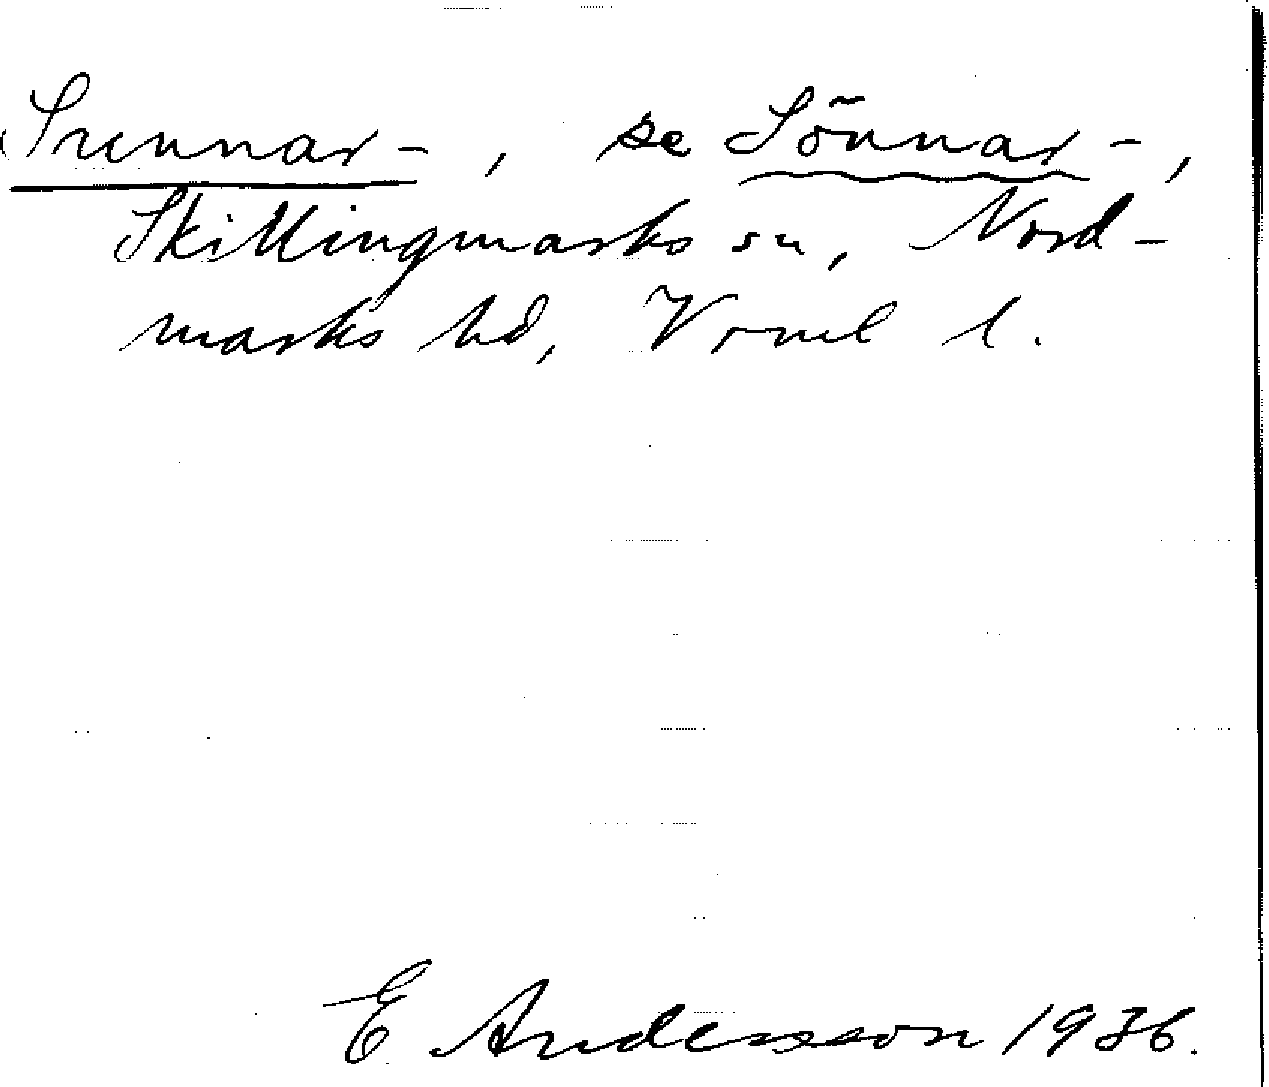 Sunnar-, se Sönnar-,
Skillingmarks sn, Nord-
marks hd, Vrml l.
E Andersson 1936.